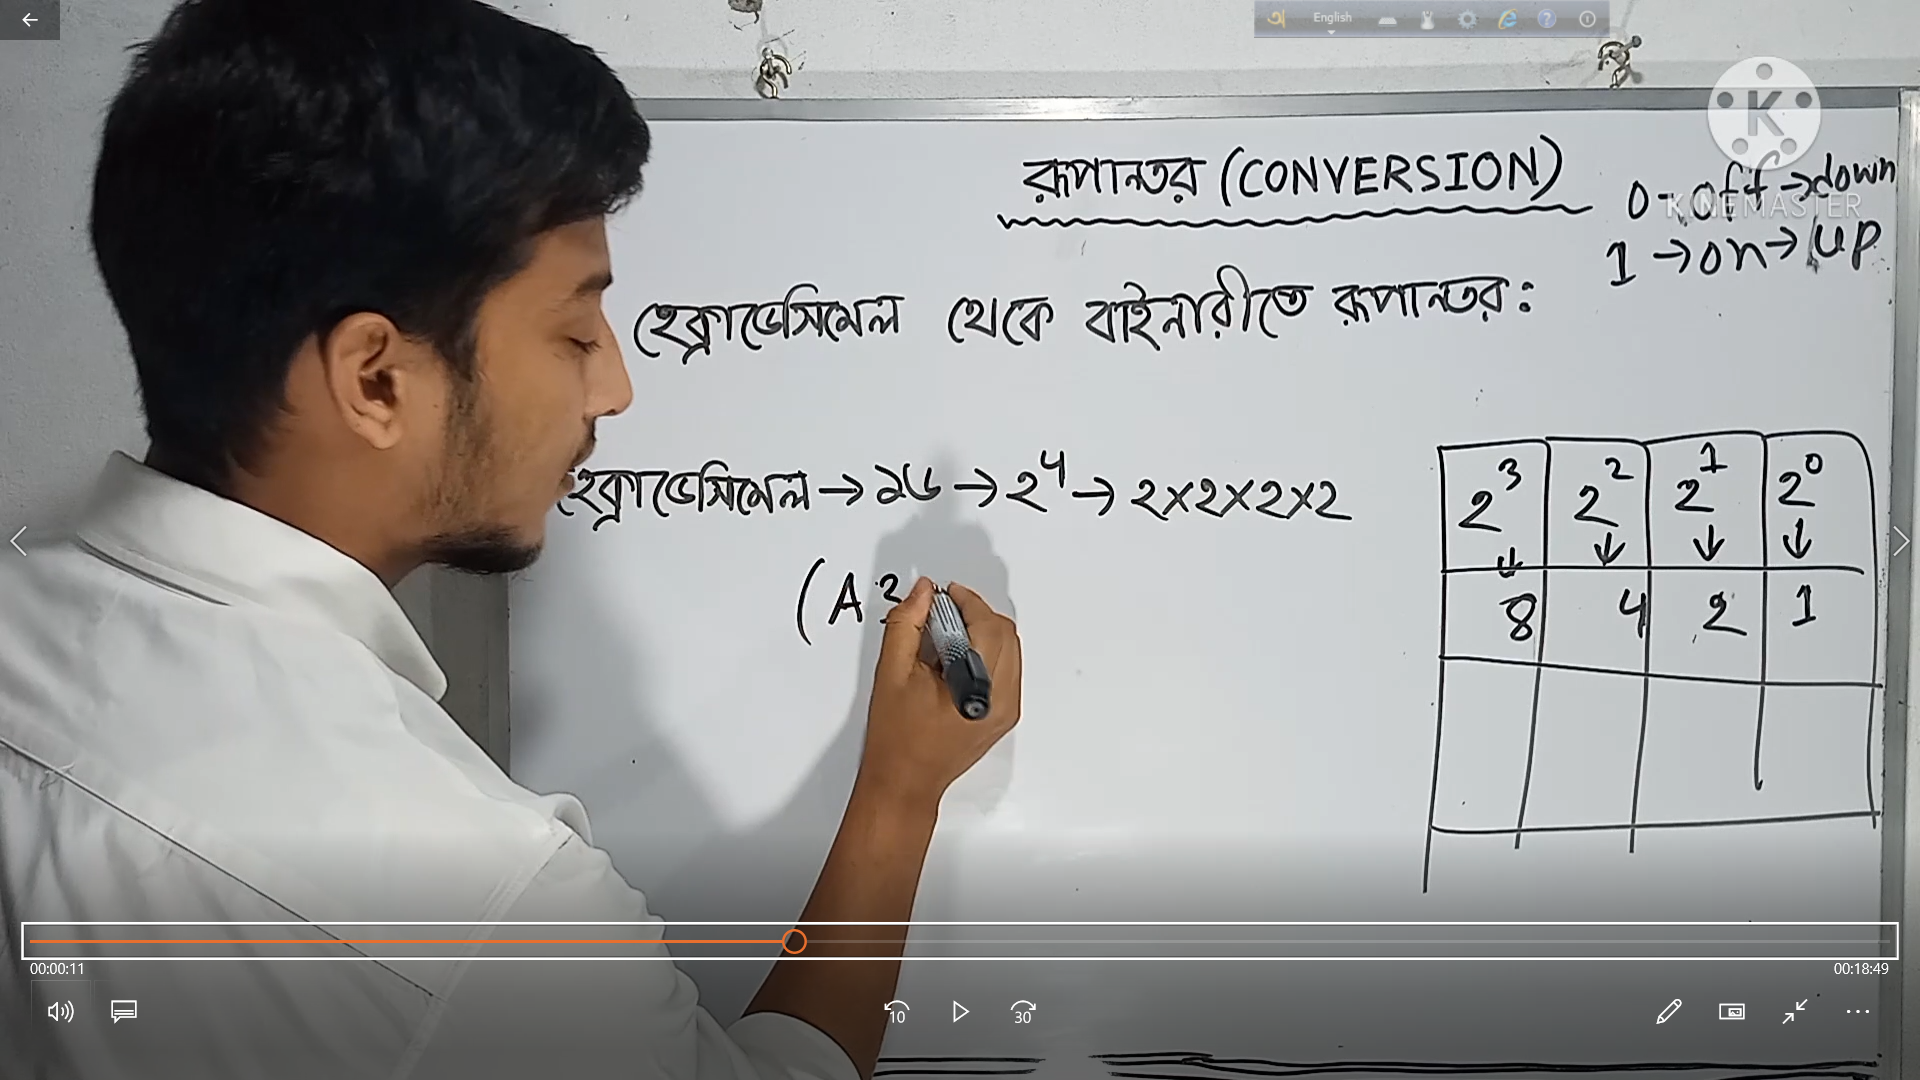 English
K
KINEMASTER
রূপান্তর (CONVERSION)
0 → off → down
1 → on → up
হেক্সাডেসিমেল থেকে বাইনারীতে রূপান্তর:
হেক্সাডেসিমেল → ১৬ → 2⁴ → 2×2×2×2
(A3
2³ 2² 2¹ 2⁰
↓ ↓ ↓ ↓
8 4 2 1
00:00:11 00:18:49
10 30